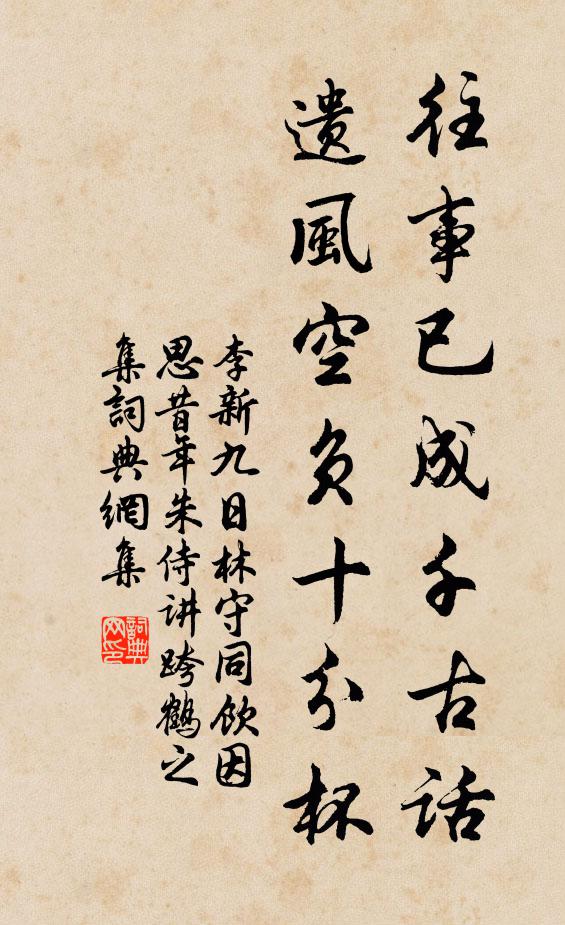 往事已成千古話
遺風空負十分杯
李新九日林守同飲因
思昔年朱侍讲跨鶴之
集詞典網集
詞典
网印